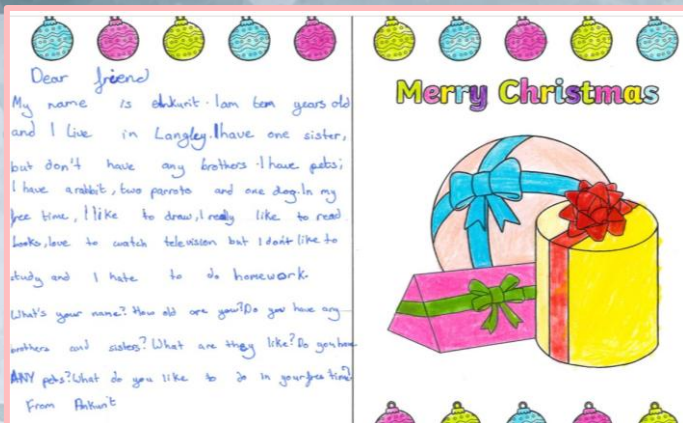 Dear friend
My name is Ankurit. I am ten years old
and I live in Langley. I have one sister,
but don't have any brothers. I have pets;
I have a rabbit, two parrots and one dog. In my
free time, I like to draw, I really like to read
books, love to watch television but I don't like to
study and I hate to do homework.
What's your name? How old are you? Do you have any
brothers and sisters? What are they like? Do you have
ANY pets? What do you like to do in your free time?
From Ankurit
Merry Christmas